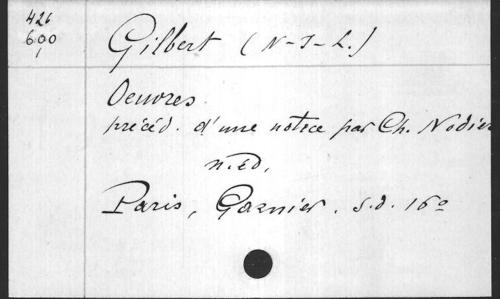 426
600
1
Gilbert (N-J-L.)
Oeuvres
précéd. d'une notice par Ch. Nodier
n.Ed.
Paris, Garnier. s.d. 16o